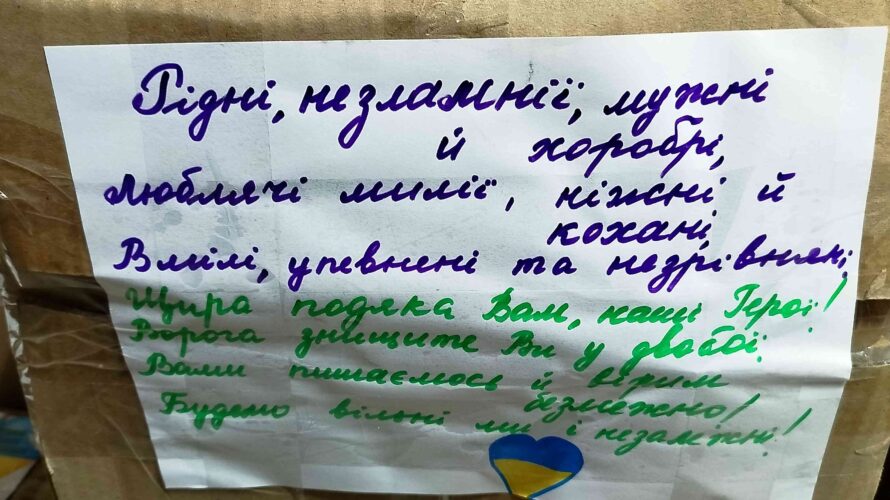 Рідні, незламнії, мужні
й хоробрі,
Люблячі милії, ніжні й
кохані,
Вмілі, упевнені та незрівнянні,
Щира подяка Вам, наші Герої!
Ворога знищите Ви у двобої,
Вами пишаємось й вірим
безмежно!
Будемо вільні ми і незаміжні!